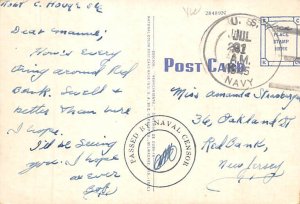 Dear Manul:
How's every
thing around Red
Bank. Swell &
better than here
I hope.
I'll be seeing
you. I hope
as ever
Bob
POST CARD
U. S.
JUL
A.M.
NAVY
PLACE
STAMP
HERE
Miss Amanda
36, Oakland St
Red Bank,
New Jersey
PASSED BY NAVAL CENSOR